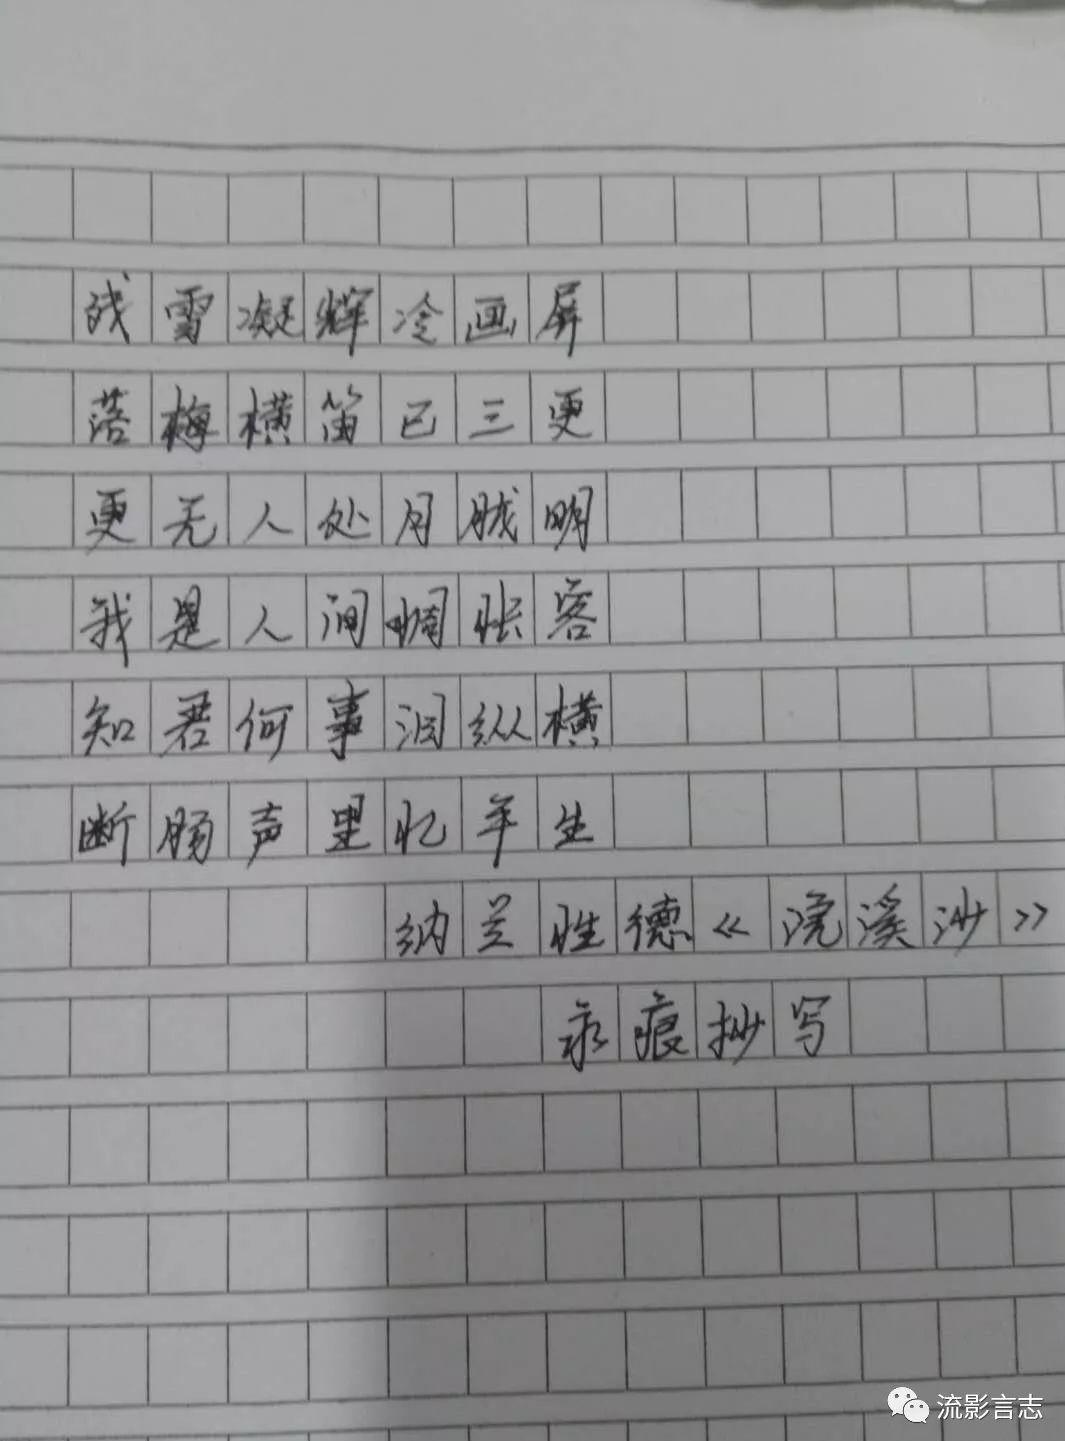 残雪凝辉冷画屏
落梅横笛已三更
更无人处月胧明
我是人间惆怅客
知君何事泪纵横
断肠声里忆平生
纳兰性德《浣溪沙》
永痕抄写
流影言志